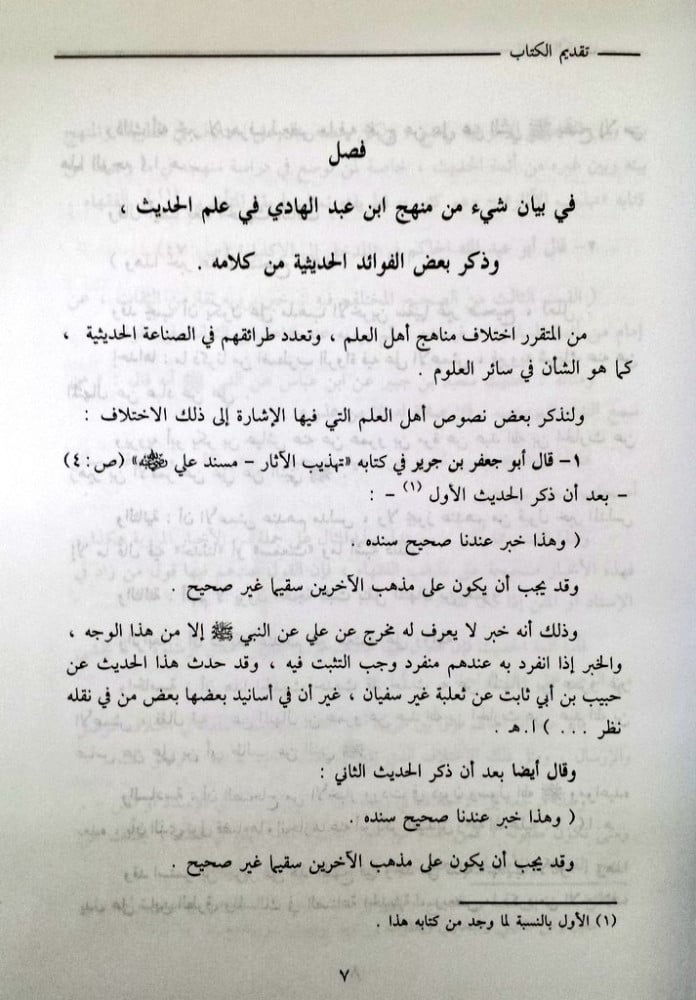 تقديم الكتاب
فصل
في بيان شيء من منهج ابن عبد الهادي في علم الحديث ،
وذكر بعض الفوائد الحديثية من كلامه .
من المتقرر اختلاف مناهج أهل العلم ، وتعدد طرائقهم في الصناعة الحديثية ،
كما هو الشأن في سائر العلوم .
ولنذكر بعض نصوص أهل العلم التي فيها الإشارة إلى ذلك الاختلاف :
١- قال أبو جعفر بن جرير في كتابه «تهذيب الآثار – مسند علي رضي الله عنه» (ص:٤)
– بعد أن ذكر الحديث الأول (١) – :
( وهذا خبر عندنا صحيح سنده .
وقد يجب أن يكون على مذهب الآخرين سقيما غير صحيح .
وذلك أنه خبر لا يعرف له مخرج عن علي عن النبي ﷺ إلا من هذا الوجه ،
والخبر إذا انفرد به عندهم منفرد وجب التثبت فيه ، وقد حدث هذا الحديث عن
حبيب بن أبي ثابت عن ثعلبة غير سفيان ، غير أن في أسانيد بعضها بعض من في نقله
نظر ... ) ا.هـ .
وقال أيضا بعد أن ذكر الحديث الثاني :
( وهذا خبر عندنا صحيح سنده .
وقد يجب أن يكون على مذهب الآخرين سقيما غير صحيح .
(١) الأول بالنسبة لما وجد من كتابه هذا .
٧